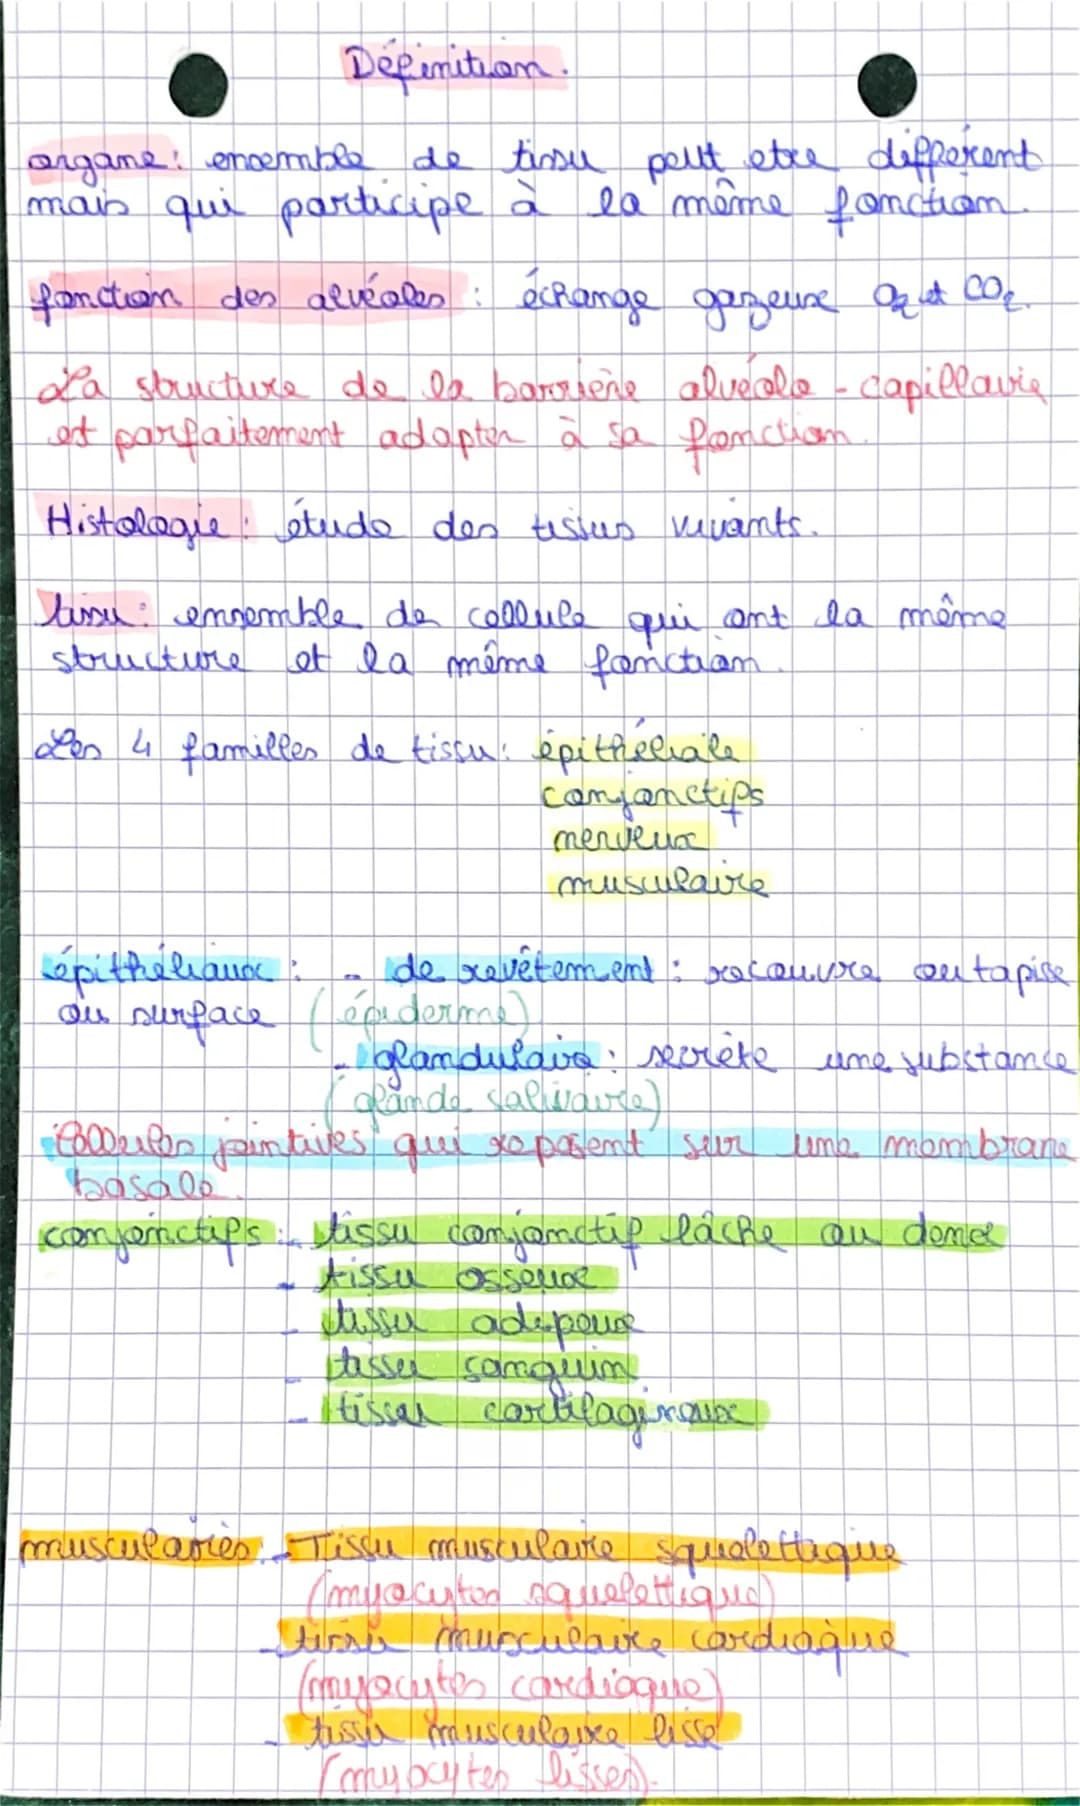 Définition.
organe: ensemble de tissu peut etre différent
mais qui participe à la même fonction.
fonction des alvéoles : échange gazeuse O2 et CO2.
La structure de la barrière alvéolo-capillaire
est parfaitement adapter à sa fonction.
Histologie: étude des tissus vivants.
tissu: ensemble de cellule qui ont la même
structure et la même fonction.
Les 4 familles de tissu: épithéliale
conjonctifs
nerveux
musculaire
épithéliaux : - de revêtement : recouvre ou tapise
ou surface (épiderme)
- glandulaire: secrète une substance
(glande salivaire)
Cellules jointives qui reposent sur une membrane
basale.
conjonctifs: - tissu conjonctif lâche ou dense
- tissu osseux
- tissu adipeux
- tissu sanguin
- tissu cartilagineux
musculaires: - Tissu musculaire squelettique
(myocytes squelettique)
- tissu musculaire cardiaque
(myocytes cardiaque)
- tissu musculaire lisse
(myocytes lisses).